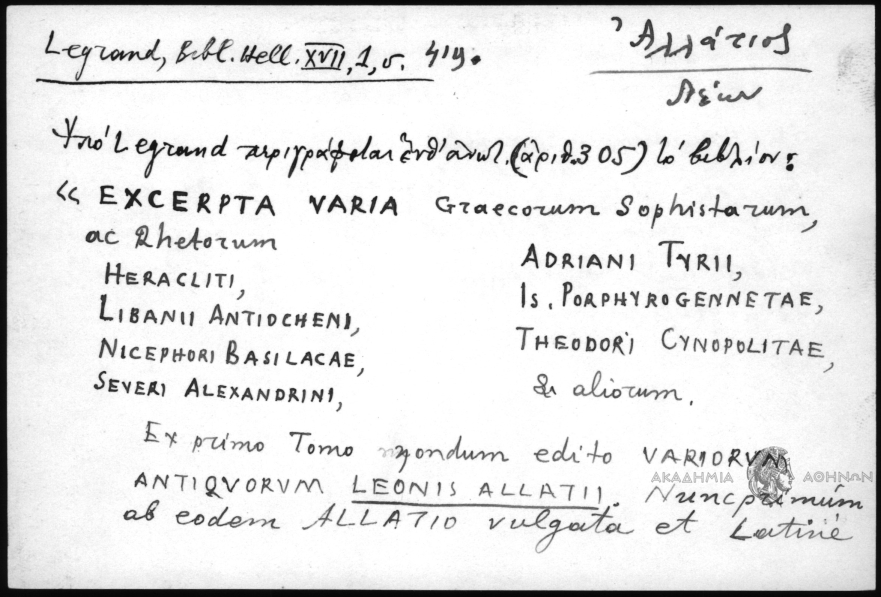 Legrand, Bibl. Hell. XVII, 1, σ. 419.
Ἀλλάτιος
Λέων
Ὑπό Legrand περιγράφεται ἐνθ' ἀνωτ. (ἀριθ. 305) τό βιβλίον:
« EXCERPTA VARIA Graecorum Sophistarum,
ac Rhetorum
HERACLITI,
LIBANII ANTIOCHENI,
NICEPHORI BASILACAE,
SEVERI ALEXANDRINI,
ADRIANI TYRII,
IS. PORPHYROGENNETAE,
THEODORI CYNOPOLITAE,
& aliorum.
Ex primo Tomo nondum edito VARIORVM
ANTIQVORVM LEONIS ALLATII. Nunc primùm
ab eodem ALLATIO vulgata et Latinè
ΑΚΑΔΗΜΙΑ ΑΘΗΝΩΝ